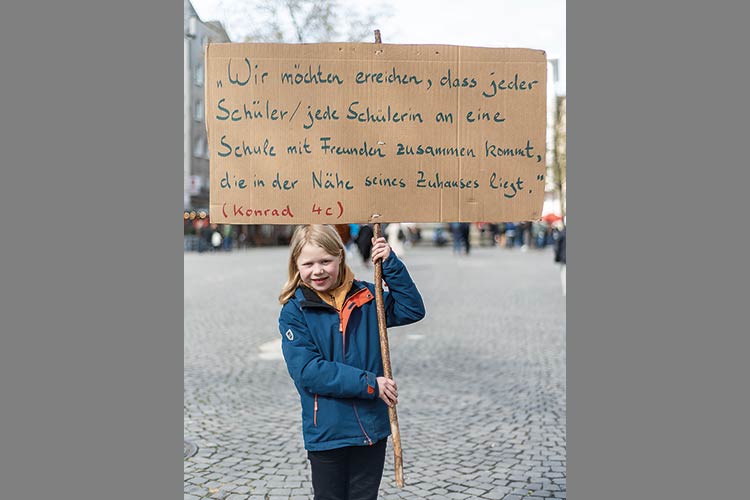 „Wir möchten erreichen, dass jeder
Schüler/jede Schülerin an eine
Schule mit Freunden zusammen kommt,
die in der Nähe seines Zuhauses liegt."
(Konrad 4c)